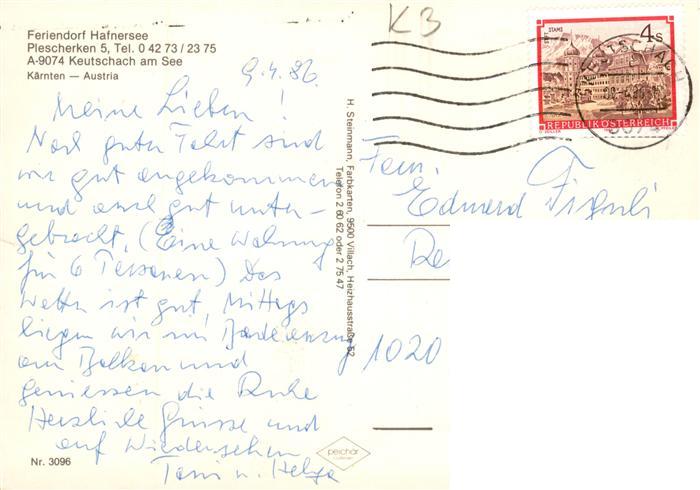 Feriendorf Hafnersee
Plescherken 5, Tel. 0 42 73 / 23 75
A-9074 Keutschach am See
Kärnten — Austria
K3
STAMS
4s
REPUBLIK ÖSTERREICH
KEUTSCHACH
9.4.86.
Meine Lieben!
Nach guter Fahrt sind
wir gut angekommen
und auch gut unter-
gebracht, (Eine Wohnung
für 6 Personen) Das
Wetter ist gut, Mittags
liegen wir im Badeanzug
am Balkon und
geniessen die Ruhe
Herzliche Grüsse und
auf Wiedersehen
Toni u. Helga
H. Steinmann, Farbkarten, 9500 Villach, Heizhausstraße 52
Telefon 2 60 62 oder 2 75 47
Fam.
Eduard Figuli
1020
Nr. 3096